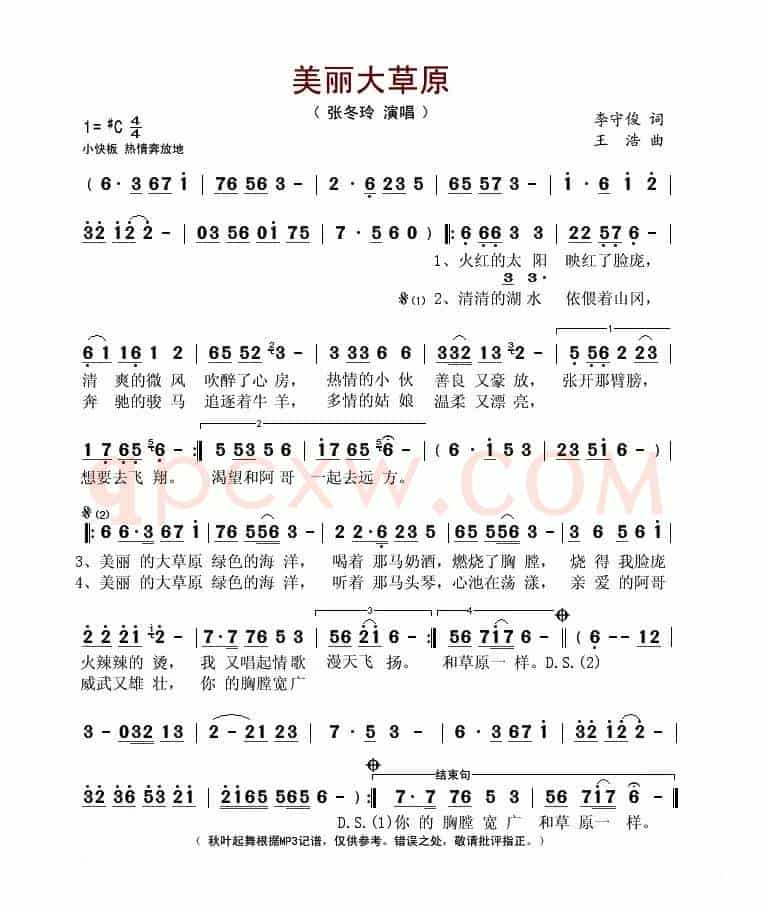 美丽大草原
（ 张冬玲 演唱 ）
1= #C 4/4
李守俊 词
小快板 热情奔放地
王 浩 曲
( 6· 3 67 1 | 76 56 3 - | 2· 6 23 5 | 65 57 3 - | 1· 6 1 2 |
32 12 2 - | 03 56 01 75 | 7· 5 6 0 ) |: 6 66 3 3 | 22 57 6 - |
1、火红的太 阳 映红了脸庞，
3 3·
(1) 2、清清的湖水 依偎着山冈，
1
6 1 16 1 2 | 65 52 3 - | 3 33 6 6 | 332 13 3 - | 5 56 2 23 |
清 爽的微 风 吹醉了心 房， 热情的小 伙 善良 又豪 放， 张开那臂膀，
奔 驰的骏 马 追逐着牛 羊， 多情的姑 娘 温柔 又漂 亮，
2
1 7 65 6 - :| 5 53 5 6 | 17 65 6 - | ( 6· 1 5 3 | 23 51 6 - ) |
想要去飞 翔。 渴望和阿 哥 一起去远 方。
qpcxw.COM
(2)
|: 6 6·3 67 1 | 76 556 3 - | 22·6 23 5 | 65 556 3 - | 3 6 5 61 |
3、美丽 的大草原 绿色的海 洋， 喝着 那马奶酒，燃烧了胸 膛， 烧 得 我脸庞
4、美丽 的大草原 绿色的海 洋， 听着 那马头琴，心池在荡 漾， 亲 爱 的阿哥
3 4
2 2 21 2 - | 7·7 76 5 3 | 56 21 6 - :| 56 717 6 - || ( 6 - - 12 |
火辣辣的 烫， 我 又唱起情 歌 漫天飞 扬。 和草原一 样。D.S.(2)
威武又雄 壮， 你 的胸膛宽 广
3 - 032 13 | 2 - 21 23 | 7· 5 3 - | 6· 3 67 1 | 13 67 1 2 |
32 36 53 21 | 2165 565 6 - :| 7· 7 76 5 3 | 56 717 6 - ||
结束句
D.S.(1)你 的 胸膛 宽 广 和草 原一 样。
（ 秋叶起舞根据MP3记谱，仅供参考。错误之处，敬请批评指正。）